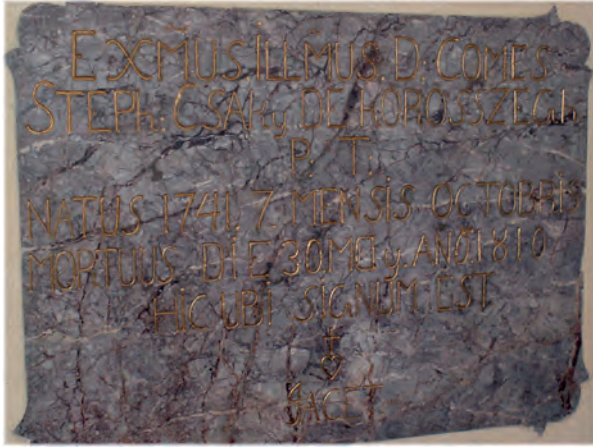 EXMUS ILLMUS. D. COMES
STEPh: CSAKy. DE KÖRÖSSZEGh
P. T.
NATUS 1741. 7. MENSIS. OCTOBRIS
MORTUUS. DIE 30. MAy. ANO. 1810.
HIC UBI SIGNUM. EST
GACET